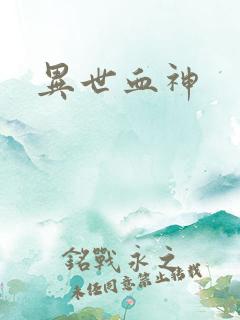 異世血神
銘戰永之
未經同意禁止轉載